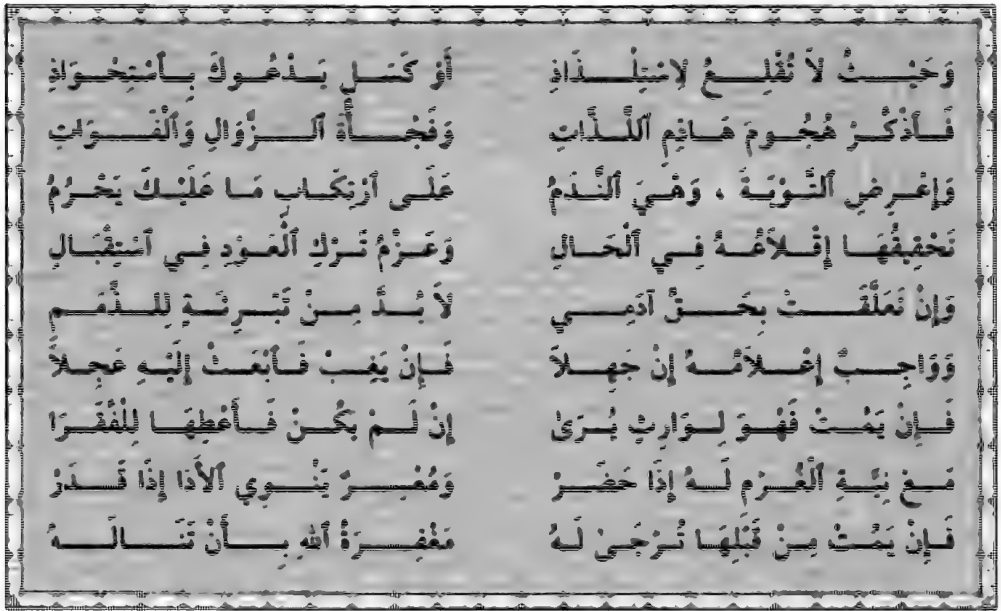 وَحَيْثُ لاَ تُقْلِعُ لِاسْتِلْذَاذِ أَوْ كَسَلٍ يَدْعُوكَ بِٱسْتِحْوَاذِ
فَٱذْكُرْ هُجُومَ هَاذِمِ ٱللَّذَّاتِ وَفَجْأَةَ ٱلزَّوَالِ وَٱلْفَوَاتِ
وَٱعْرِضِ ٱلتَّوْبَةَ ، وَهْيَ ٱلنَّدَمُ عَلَى ٱرْتِكَابِ مَا عَلَيْكَ يَحْرُمُ
تَحْقِيقُهَا إِقْلاَعُهُ فِي ٱلْحَالِ وَعَزْمُ تَرْكِ ٱلْعَوْدِ فِي ٱسْتِقْبَالِ
وَإِنْ تَعَلَّقَتْ بِحَقِّ آدَمِي لاَ بُدَّ مِنْ تَبْرِئَةٍ لِلذِّمَمِ
وَوَاجِبٌ إِعْلاَمُهُ إِنْ جَهِلاَ فَإِنْ يَغِبْ فَٱبْعَثْ إِلَيْهِ عَجِلاً
فَإِنْ يَمُتْ فَهْوَ لِوَارِثٍ يُرَىٰ إِنْ لَمْ يَكُنْ فَأَعْطِهَا لِلْفُقَرَا
مَعْ نِيَّةِ ٱلْغُرْمِ لَهُ إِذَا حَضَرْ وَمُعْسِرٌ يَنْوِي ٱلأَدَا إِذَا قَدَرْ
فَإِنْ يَمُتْ مِنْ قَبْلِهَا تُرْجَىٰ لَهُ مَغْفِرَةُ ٱللهِ بِأَنْ تَنَالَهُ